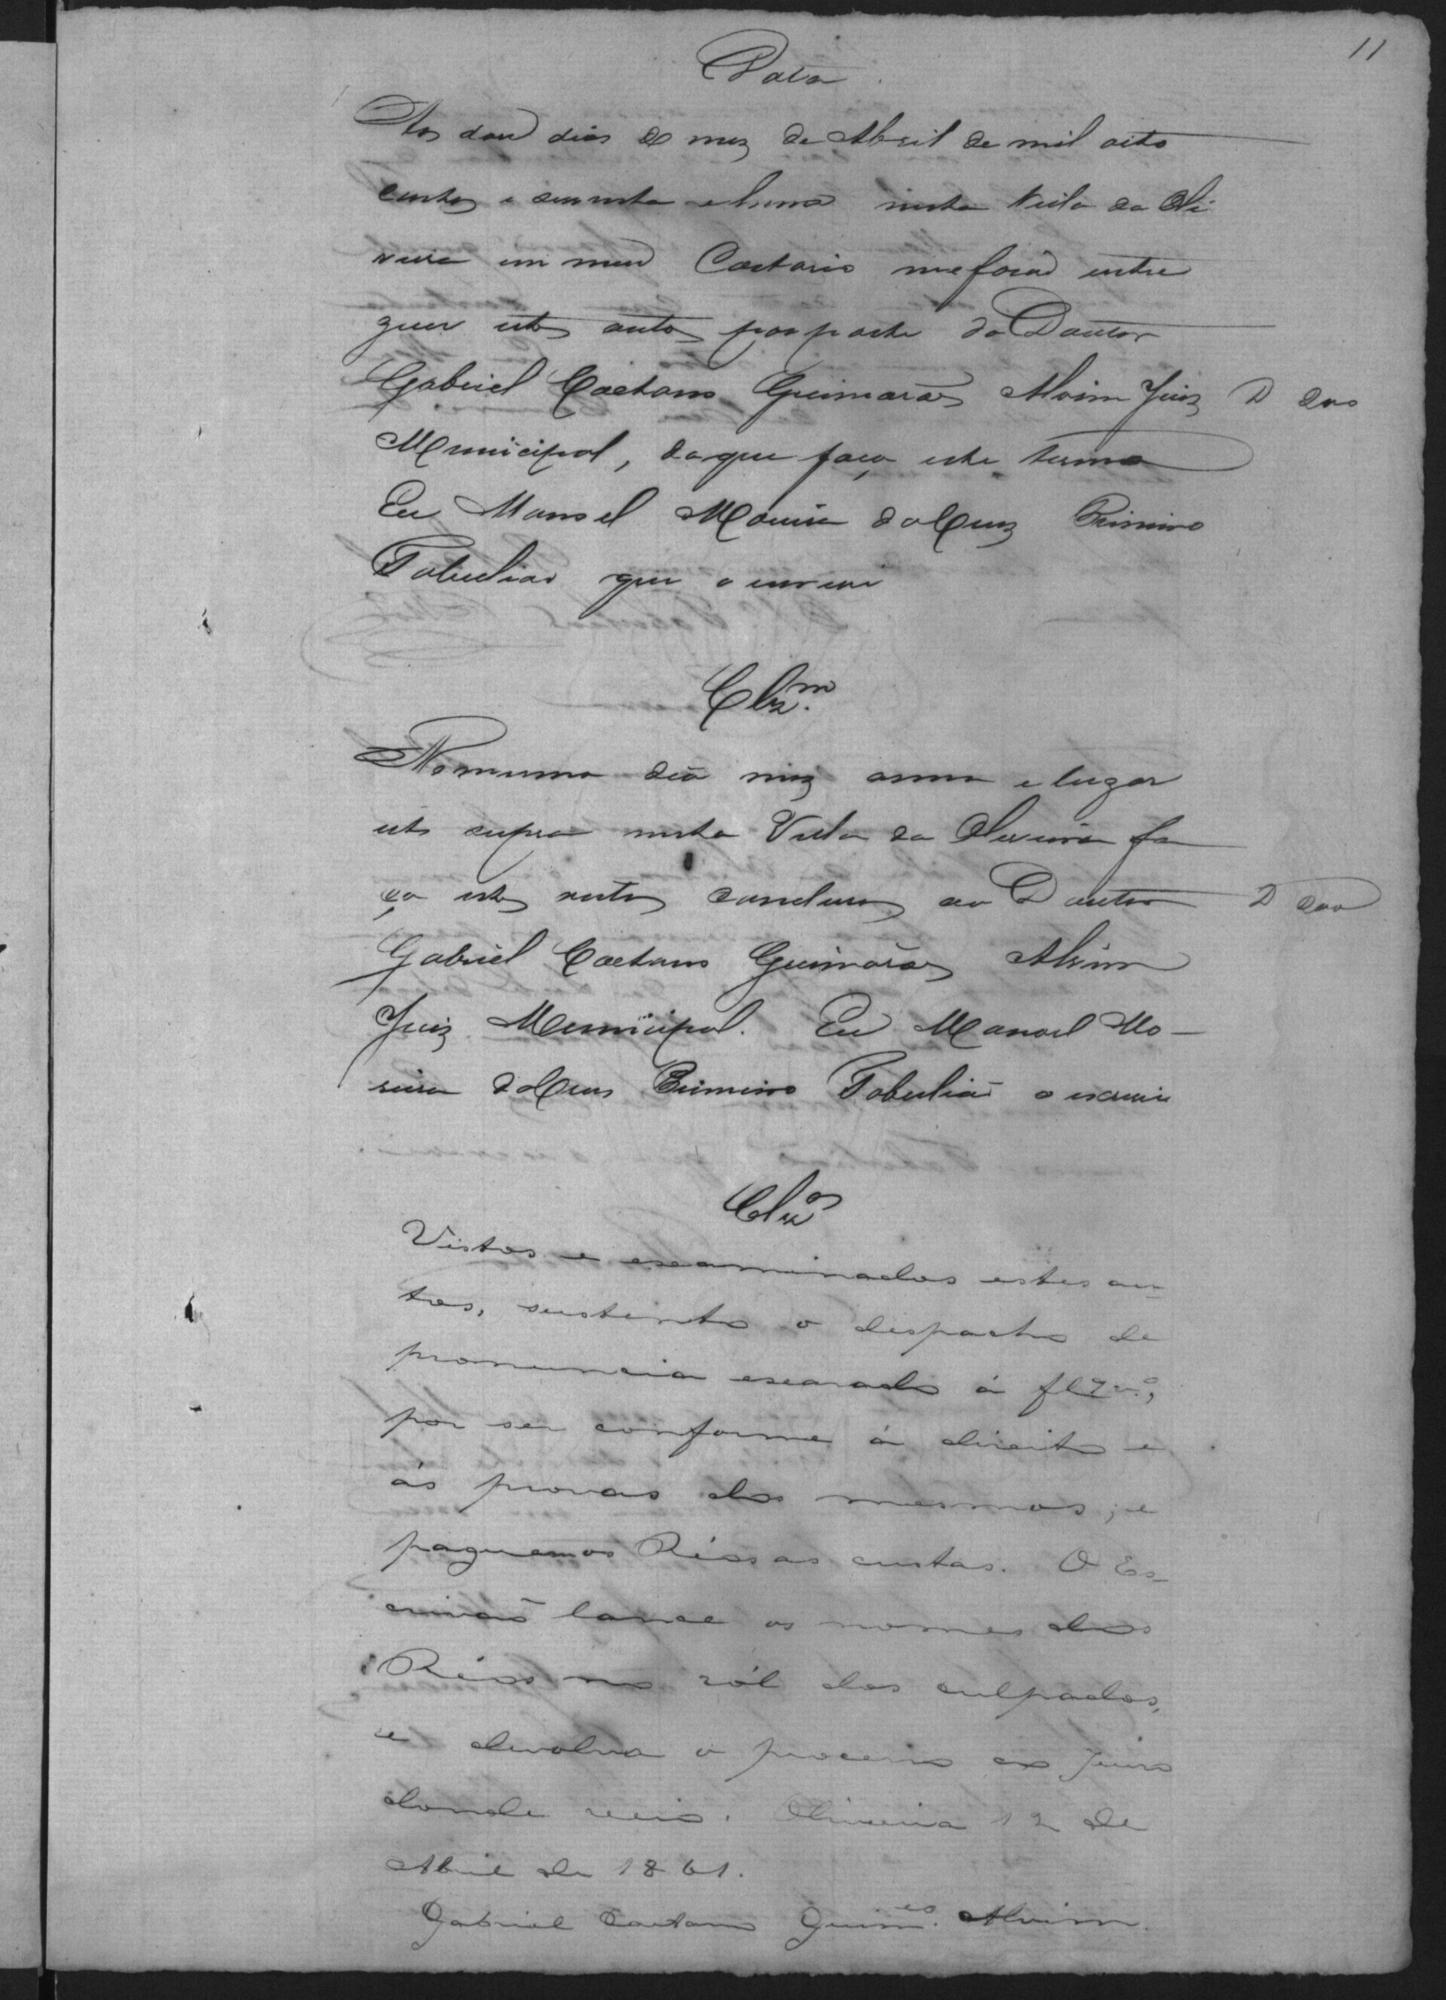 11
Data
Aos dous dias do mez de Abril de mil oito
centos e secenta e hum nesta Villa da Oli
veira em meu Cartorio me forão entre
gues estes autos por parte do Doutor
Gabriel Caetano Guimarães Alvim Juiz
Municipal, do que faço este termo
Eu Manoel Moreira da Cruz Primeiro
Tabelião que o escrevi
Clzm.
No mesmo dia mez anno e lugar
ut supra nesta Villa da Oliveira fa
ço estes autos concluzos ao Doutor
Gabriel Caetano Guimarães Alvim
Juiz Municipal. Eu Manoel Mo-
reira da Cruz Primeiro Tabelião o escrevi
Clzos
Vistos e examinados estes au-
tos, sustento o despacho de
pronuncia exarado á fl 7 vº,
por ser conforme á direito e
ás provas dos mesmos; e
paguem os Réos as custas. O Es-
crivão lance os nomes dos
Réos no ról dos culpados,
e devolva o processo ao Juiso
donde veio. Oliveira 12 de
Abril de 1861.
Gabriel Caetano Guimes. Alvim.